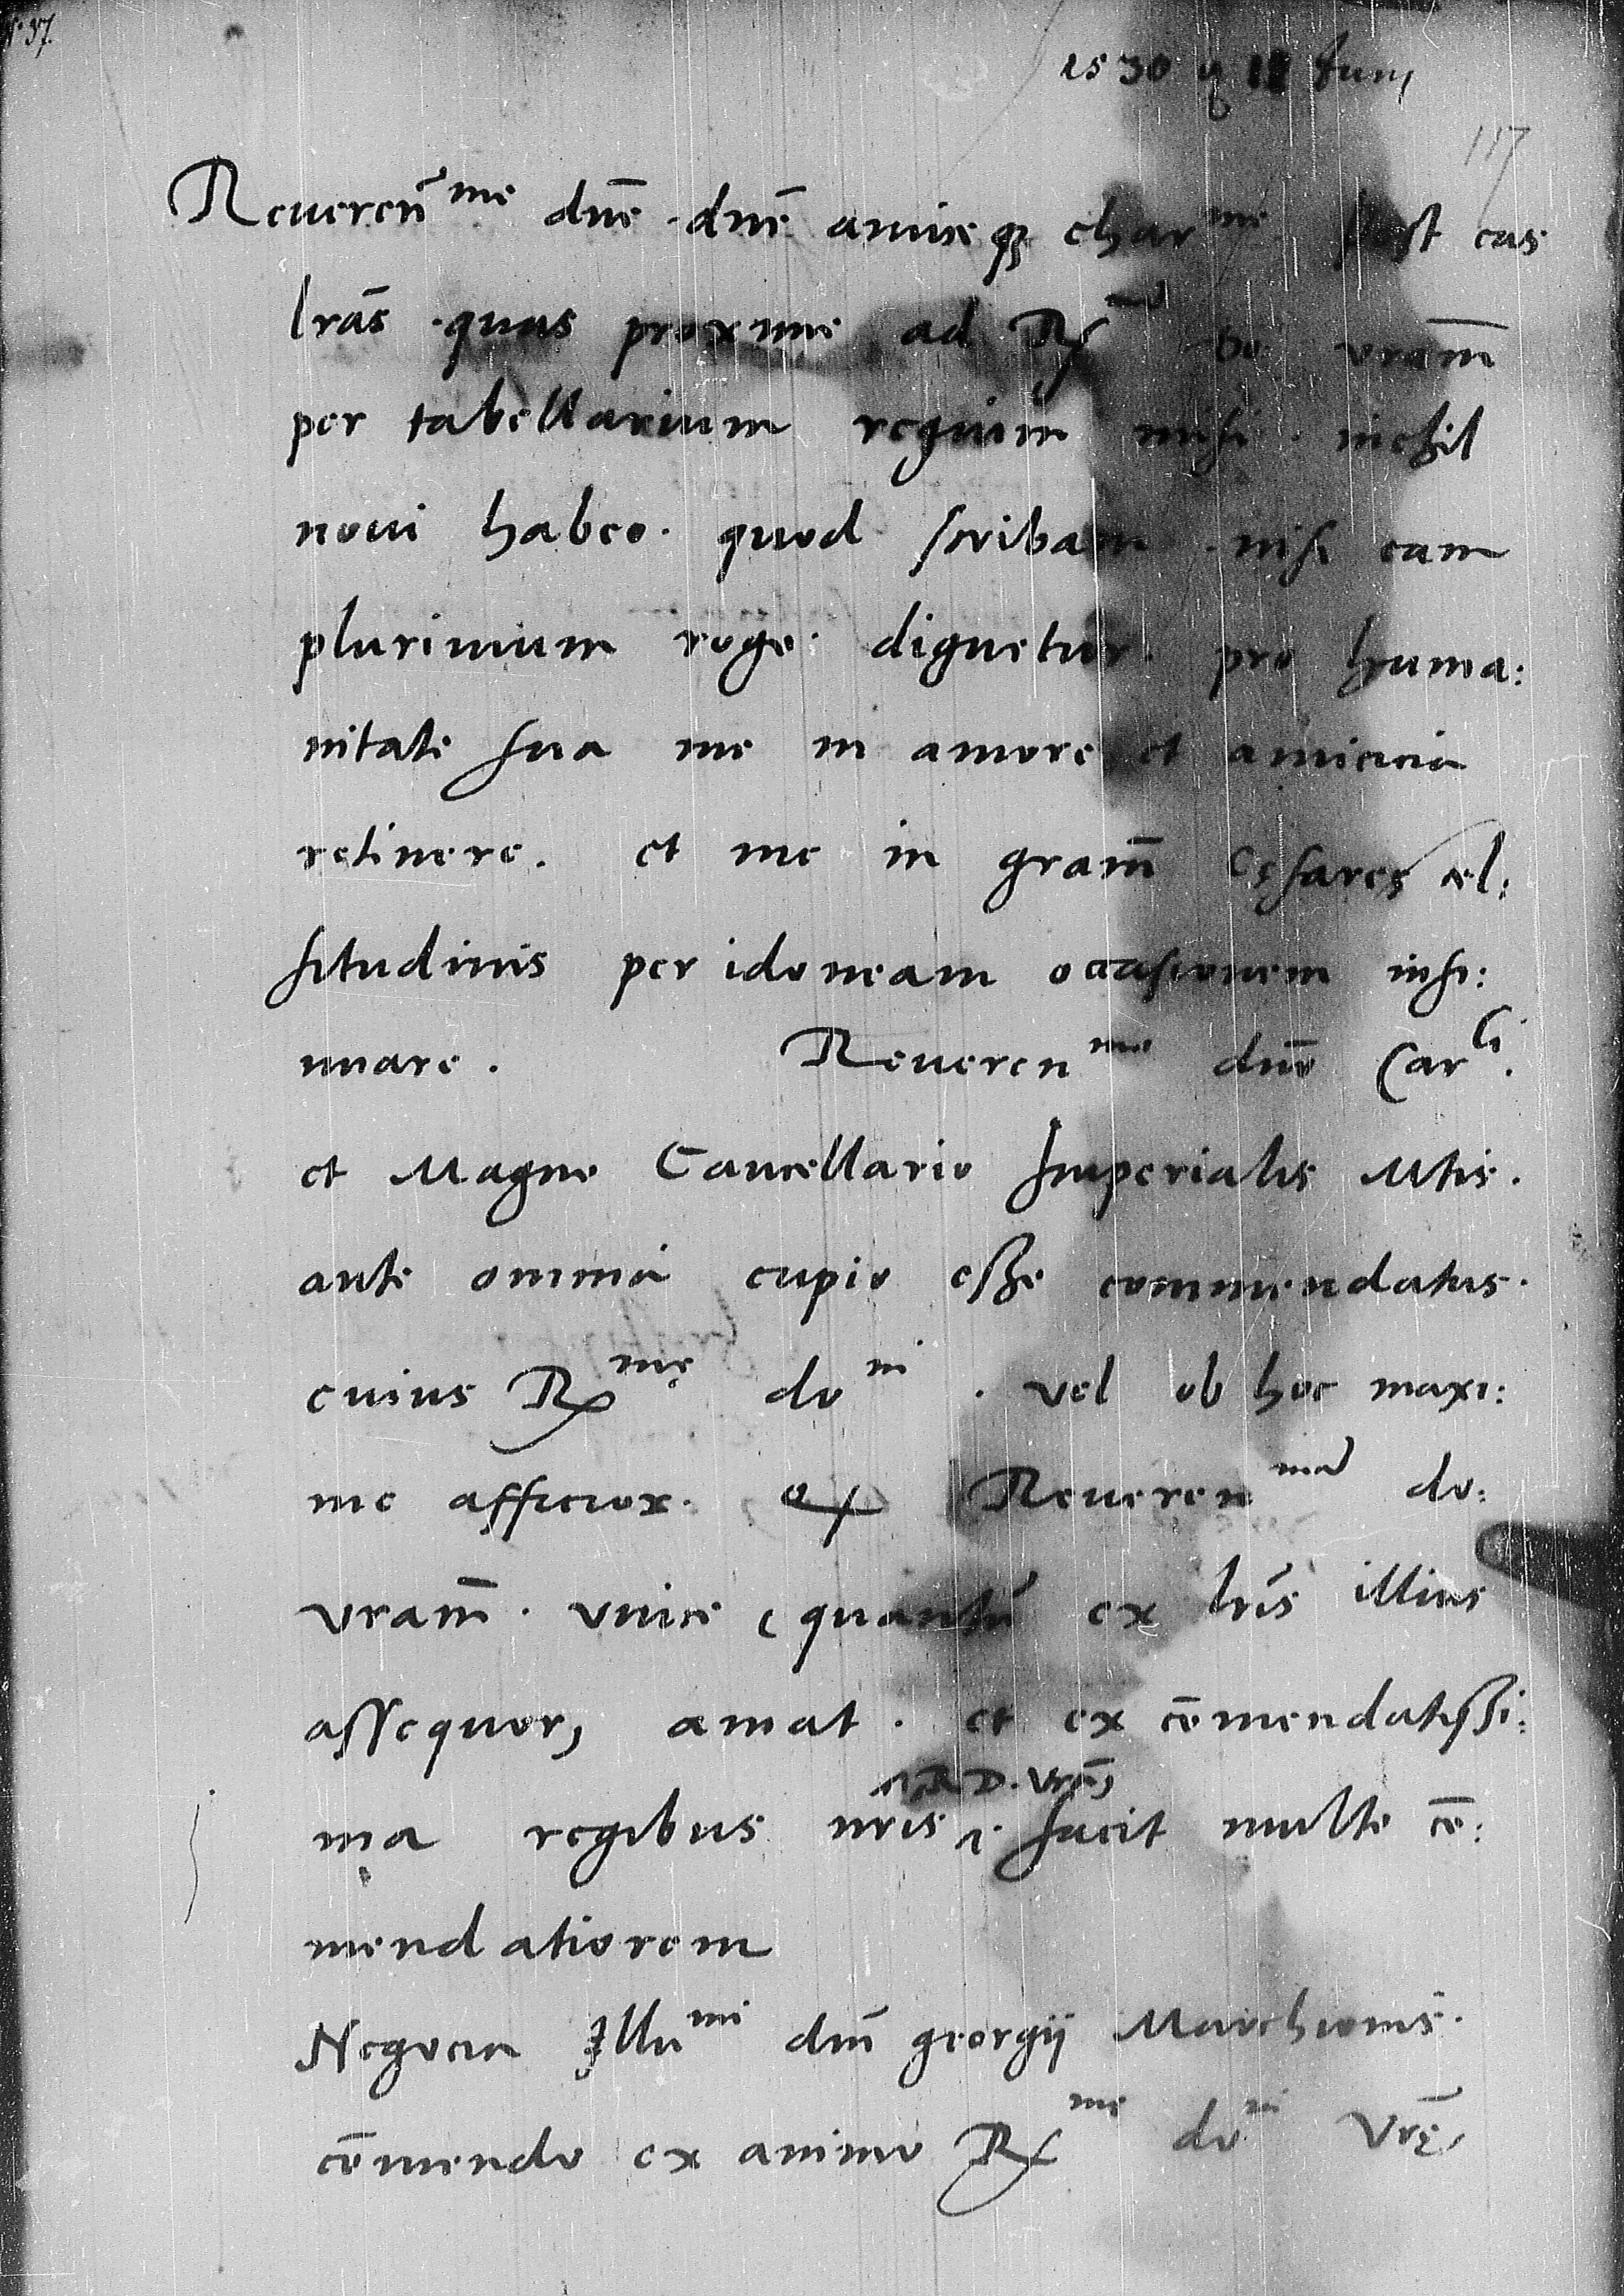 1530 Junii
117
Reveren͂me dn͂e dn͂e amiceqꝫ charme post eas
lr͂as quas proxime ad Rmã do vram̄
per tabellarium regium misi nichil
novi habeo quod scribam nisi eam
plurimum rogo dignetur pro huma:
nitate sua me in amore et amicicia
retinere. et me in gram̄ cęsareę cel:
situdinis per idoneam occasionem insi:
nuare. Reverenmo dn͂o Carli.
et Magno Cancellario Imperialis Mtis.
ante omnia cupio eße commendatus.
cuius Rmę doni. vel ob hoc maxi:
me afficior. Reverenmã do:
vram̄. vnice (quantū ex lr͂is illius
assequor) amat. et ex cōmendatißi:
ma regibus nr͂is R D. Vrãm facit multo cō:
mendatiorem
Negocia Illumi dn͂i georgij Marchionis.
cōmendo ex animo Rme doni Vrę